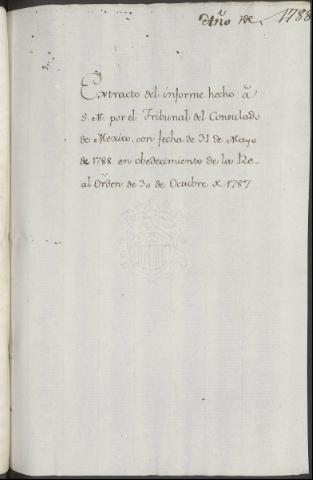 Año de 1788
Extracto del informe hecho â
S. M. por el Tribunal del Consulado
de Mexico, con fecha de 31 de Mayo
de 1788 en obedecimiento de la Re-
al Orden de 30 de Octubre d 1787